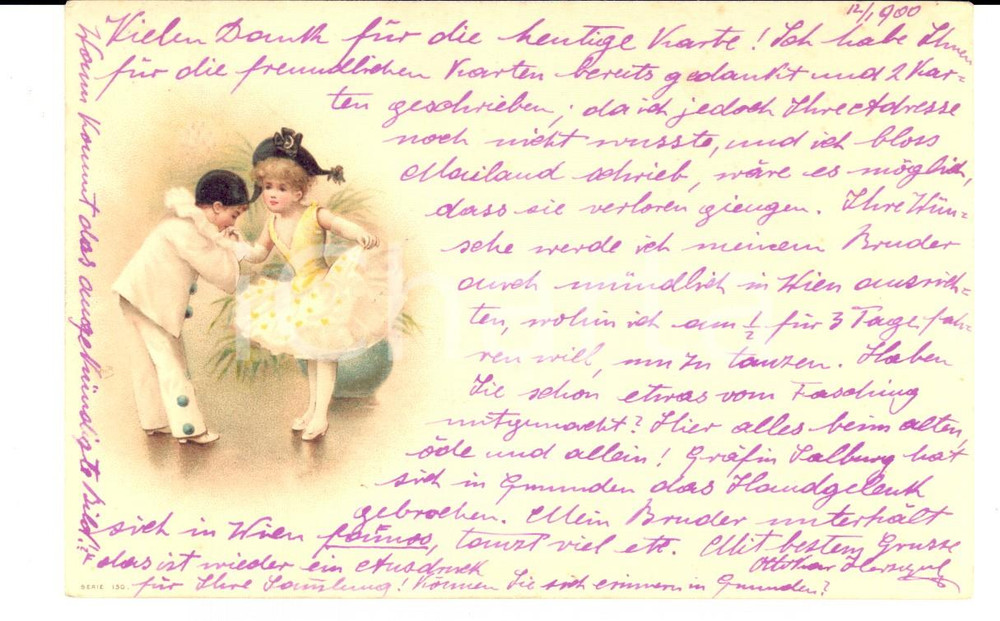 12/1 900
Vielen Dank für die heutige Karte! Ich habe Ihnen
für die freundlichen Karten bereits gedankt und 2 Kar=
ten geschrieben; da ich jedoch Ihre Adresse
noch nicht wusste, und ich bloss
Mailand schrieb, wäre es möglich,
dass sie verloren giengen. Ihre Wün=
sche werde ich meinem Bruder
auch mündlich in Wien ausrich=
ten, wohin ich am 1/2 für 3 Tage fah=
ren will, um zu tanzen. Haben
Sie schon etwas vom Fasching
mitgemacht? Hier alles beim alten,
öde und allein! Gräfin Salburg hat
sich in Gmunden das Handgelenk
gebrochen. Mein Bruder unterhält
sich in Wien famos, tanzt viel etc. Mit bestem Grusse
das ist wieder ein Ausdruck
Ottokar
für Ihre Samlung! Können Sie sich erinnern in Gmunden?
Wann kommt das angekündigte Bild!?
SERIE 130.